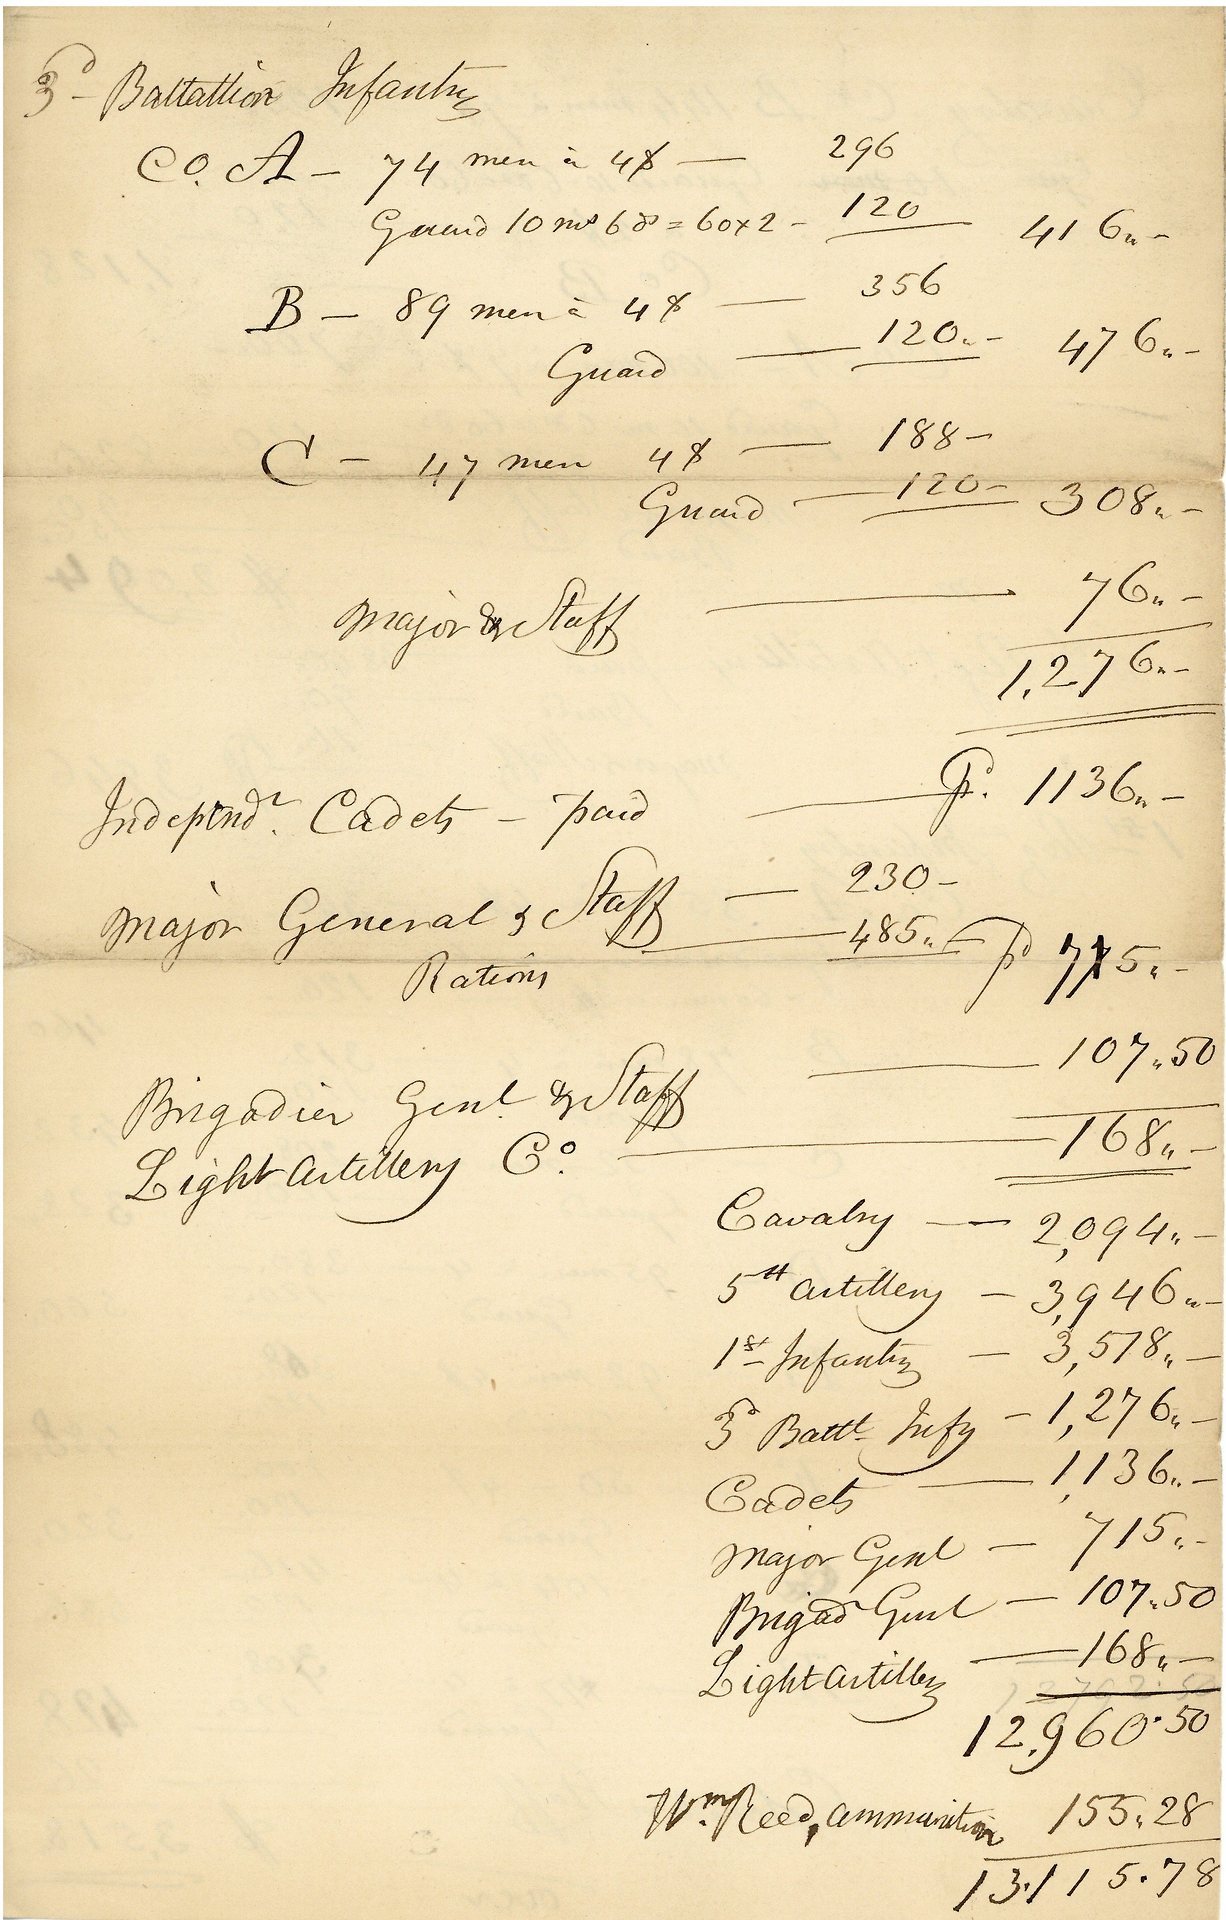 3d Battallion Infantry
Co. A — 74 men à 4$ — 296
Guard 10 ms 6$ = 60x2 - 120 416„-
B — 89 men à 4$ — 356
Guard — 120„- 476„-
C — 47 men 4$ — 188-
Guard — 120- 308„-
Major & Staff — 76„-
1,276„-
Independt. Cadets - paid — pd. 1136„-
Major General & Staff — 230-
Rations — 485„- pd 715„-
Brigadier Genl & Staff — 107„50
Light Artillery Co. — 168„-
Cavalry — 2,094„-
5th Artillery — 3,946„-
1st Infantry — 3,518„-
3d Battl Infy — 1,276„-
Cadets — 1,136„-
Major Genl — 715„-
Brigad Genl — 107„50
Light Artillery — 168„-
12,960.50
Wm. Reed, ammunition 155„28
13.115.78